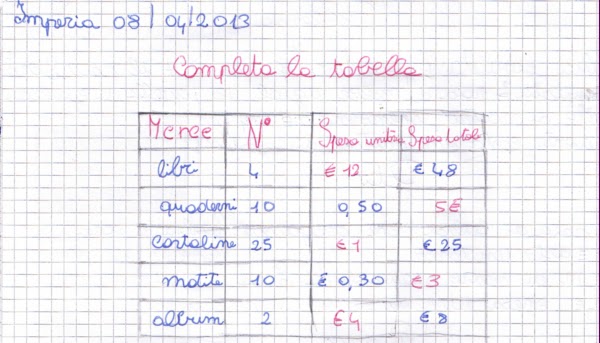 Imperia 08/04/2013
Completa la tabella
Merce N° Spesa unitar Spesa total
libri 4 € 12 € 48
quaderni 10 0,50 5€
cartoline 25 € 1 € 25
matite 10 € 0,30 € 3
album 2 € 4 € 8